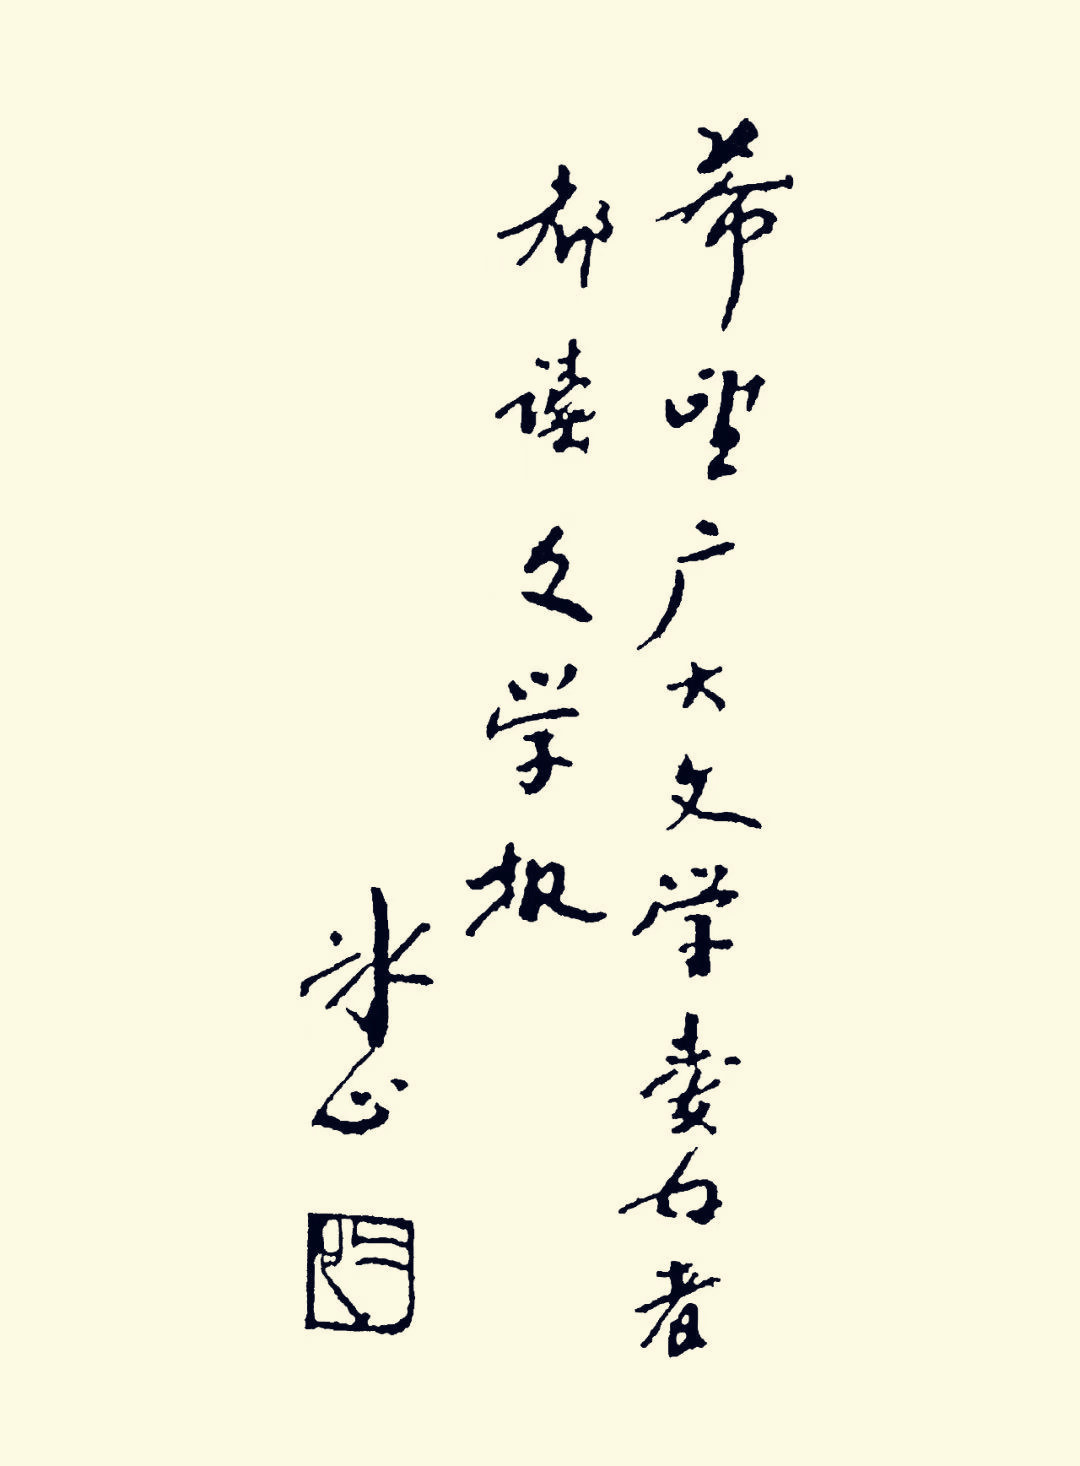 希望广大文学爱好者
都读文学报
冰心